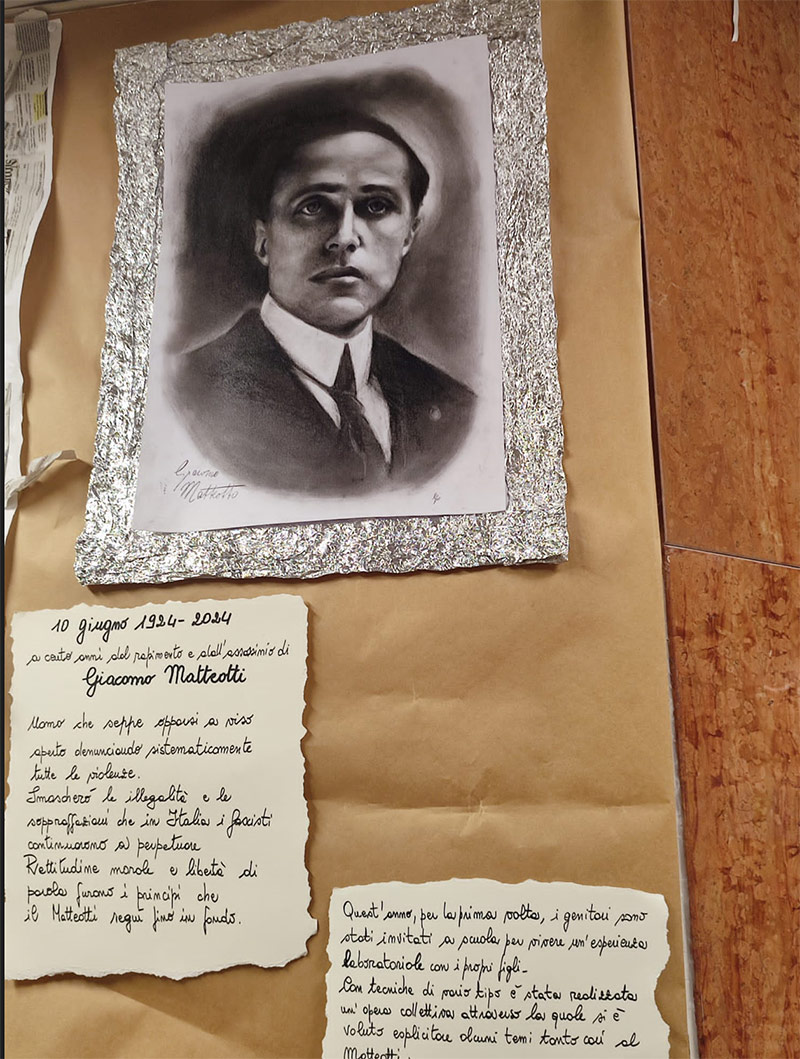 Giacomo
Matteotti
10 giugno 1924-2024
a cento anni dal rapimento e dall'assassinio di
Giacomo Matteotti
Uomo che seppe opporsi a viso
aperto denunciando sistematicamente
tutte le violenze.
Smascherò le illegalità e le
sopraffazioni che in Italia i fascisti
continuarono a perpetuare
Rettitudine morale e libertà di
parola furono i principi che
il Matteotti seguì fino in fondo.
Quest'anno, per la prima volta, i genitori sono
stati invitati a scuola per vivere un'esperienza
laboratoriale con i propri figli-
Con tecniche di vario tipo è stata realizzata
un'opera collettiva attraverso la quale si è
voluto esplicitare alcuni temi tanto cari al
Matteotti